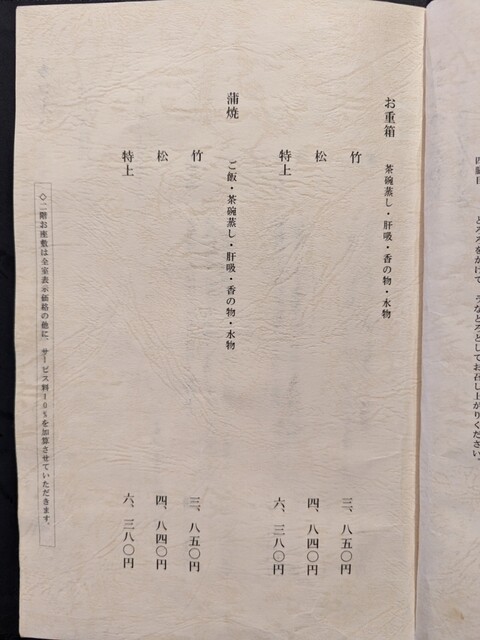 とろろをかけて、うなとろとしてお召し上がりください。
お重箱　茶碗蒸し・肝吸・香の物・水物
竹　三、八五〇円
松　四、八四〇円
特上　六、三八〇円
蒲焼　ご飯・茶碗蒸し・肝吸・香の物・水物
竹　三、八五〇円
松　四、八四〇円
特上　六、三八〇円
◇二階お座敷は全室表示価格の他に、サービス料10%を加算させていただきます。